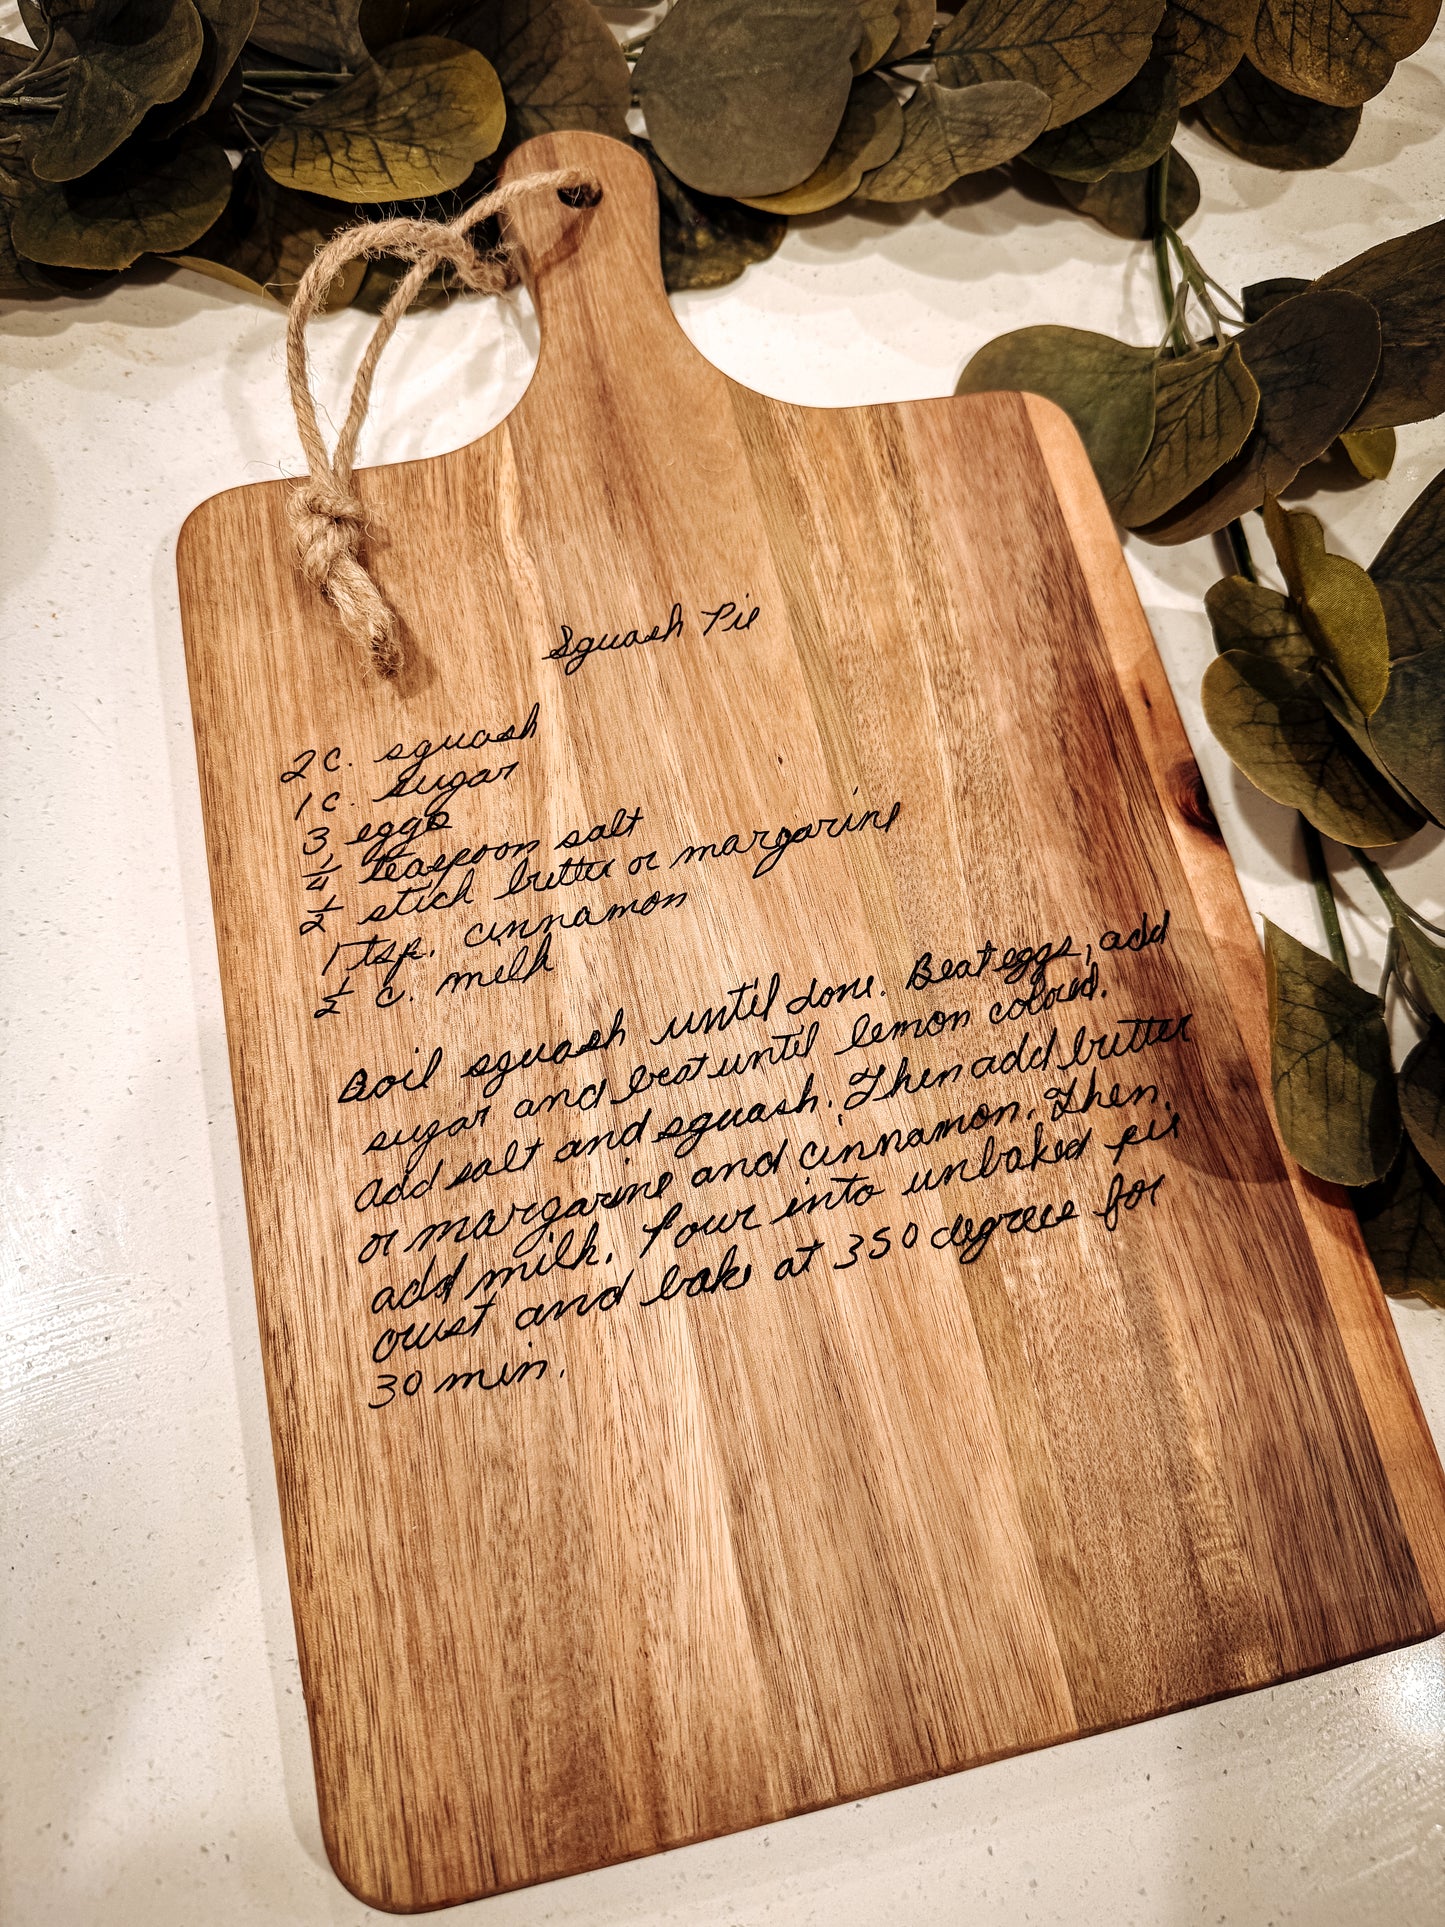 Squash Pie
2 c. squash
1 c. sugar
3 eggs
1/4 teaspoon salt
1/2 stick butter or margarine
1 tsp. cinnamon
1/2 c. milk
Boil squash until done. Beat eggs, add
sugar and beat until lemon colored.
Add salt and squash. Then add butter
or margarine and cinnamon. Then
add milk. Pour into unbaked pie
crust and bake at 350 degrees for
30 min.